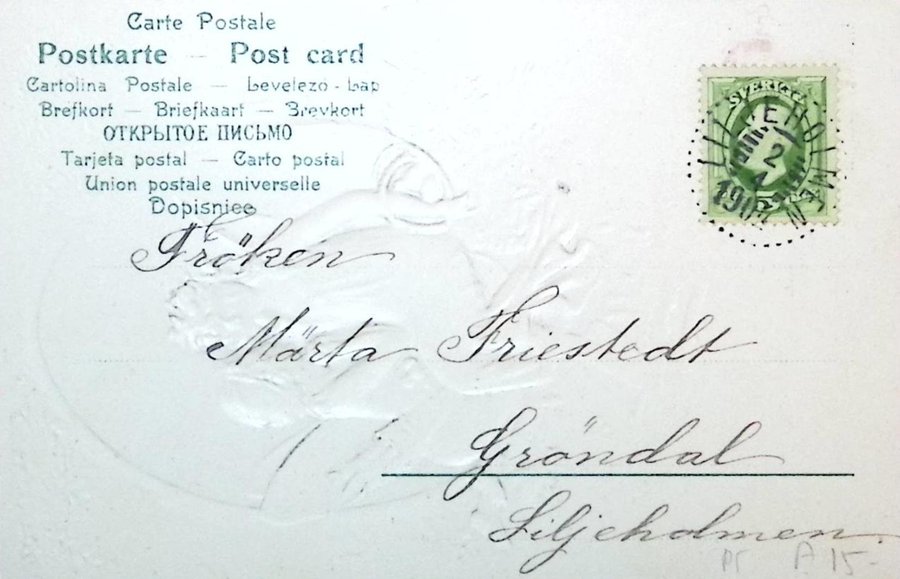 Carte Postale
Postkarte — Post card
Cartolina Postale — Levelezo-Lap
Brefkort — Briefkaart — Brevkort
ОТКРЫТОЕ ПИСЬМО
Tarjeta postal — Carto postal
Union postale universelle
Dopisniee
SVERIGE
LILJEHOLMEN
2
1
Fröken
Märta Friestedt
Gröndal
Liljeholmen.
A 15-